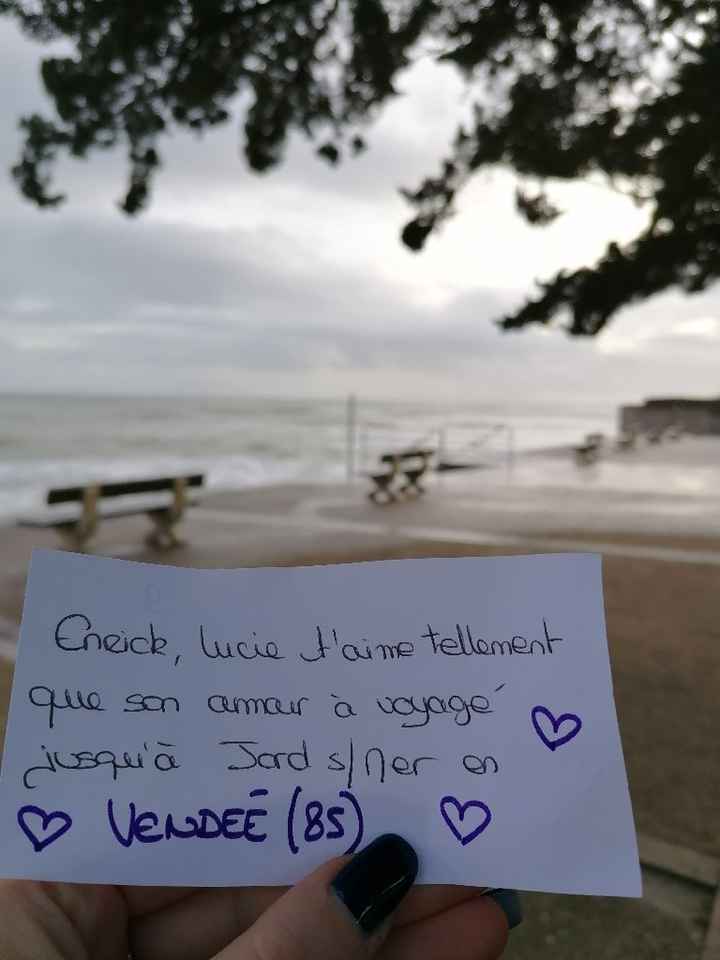 Enrick, Lucie t'aime tellement
que son amour à voyagé
jusqu'à Jard s/Mer en
VENDEÉ (85)